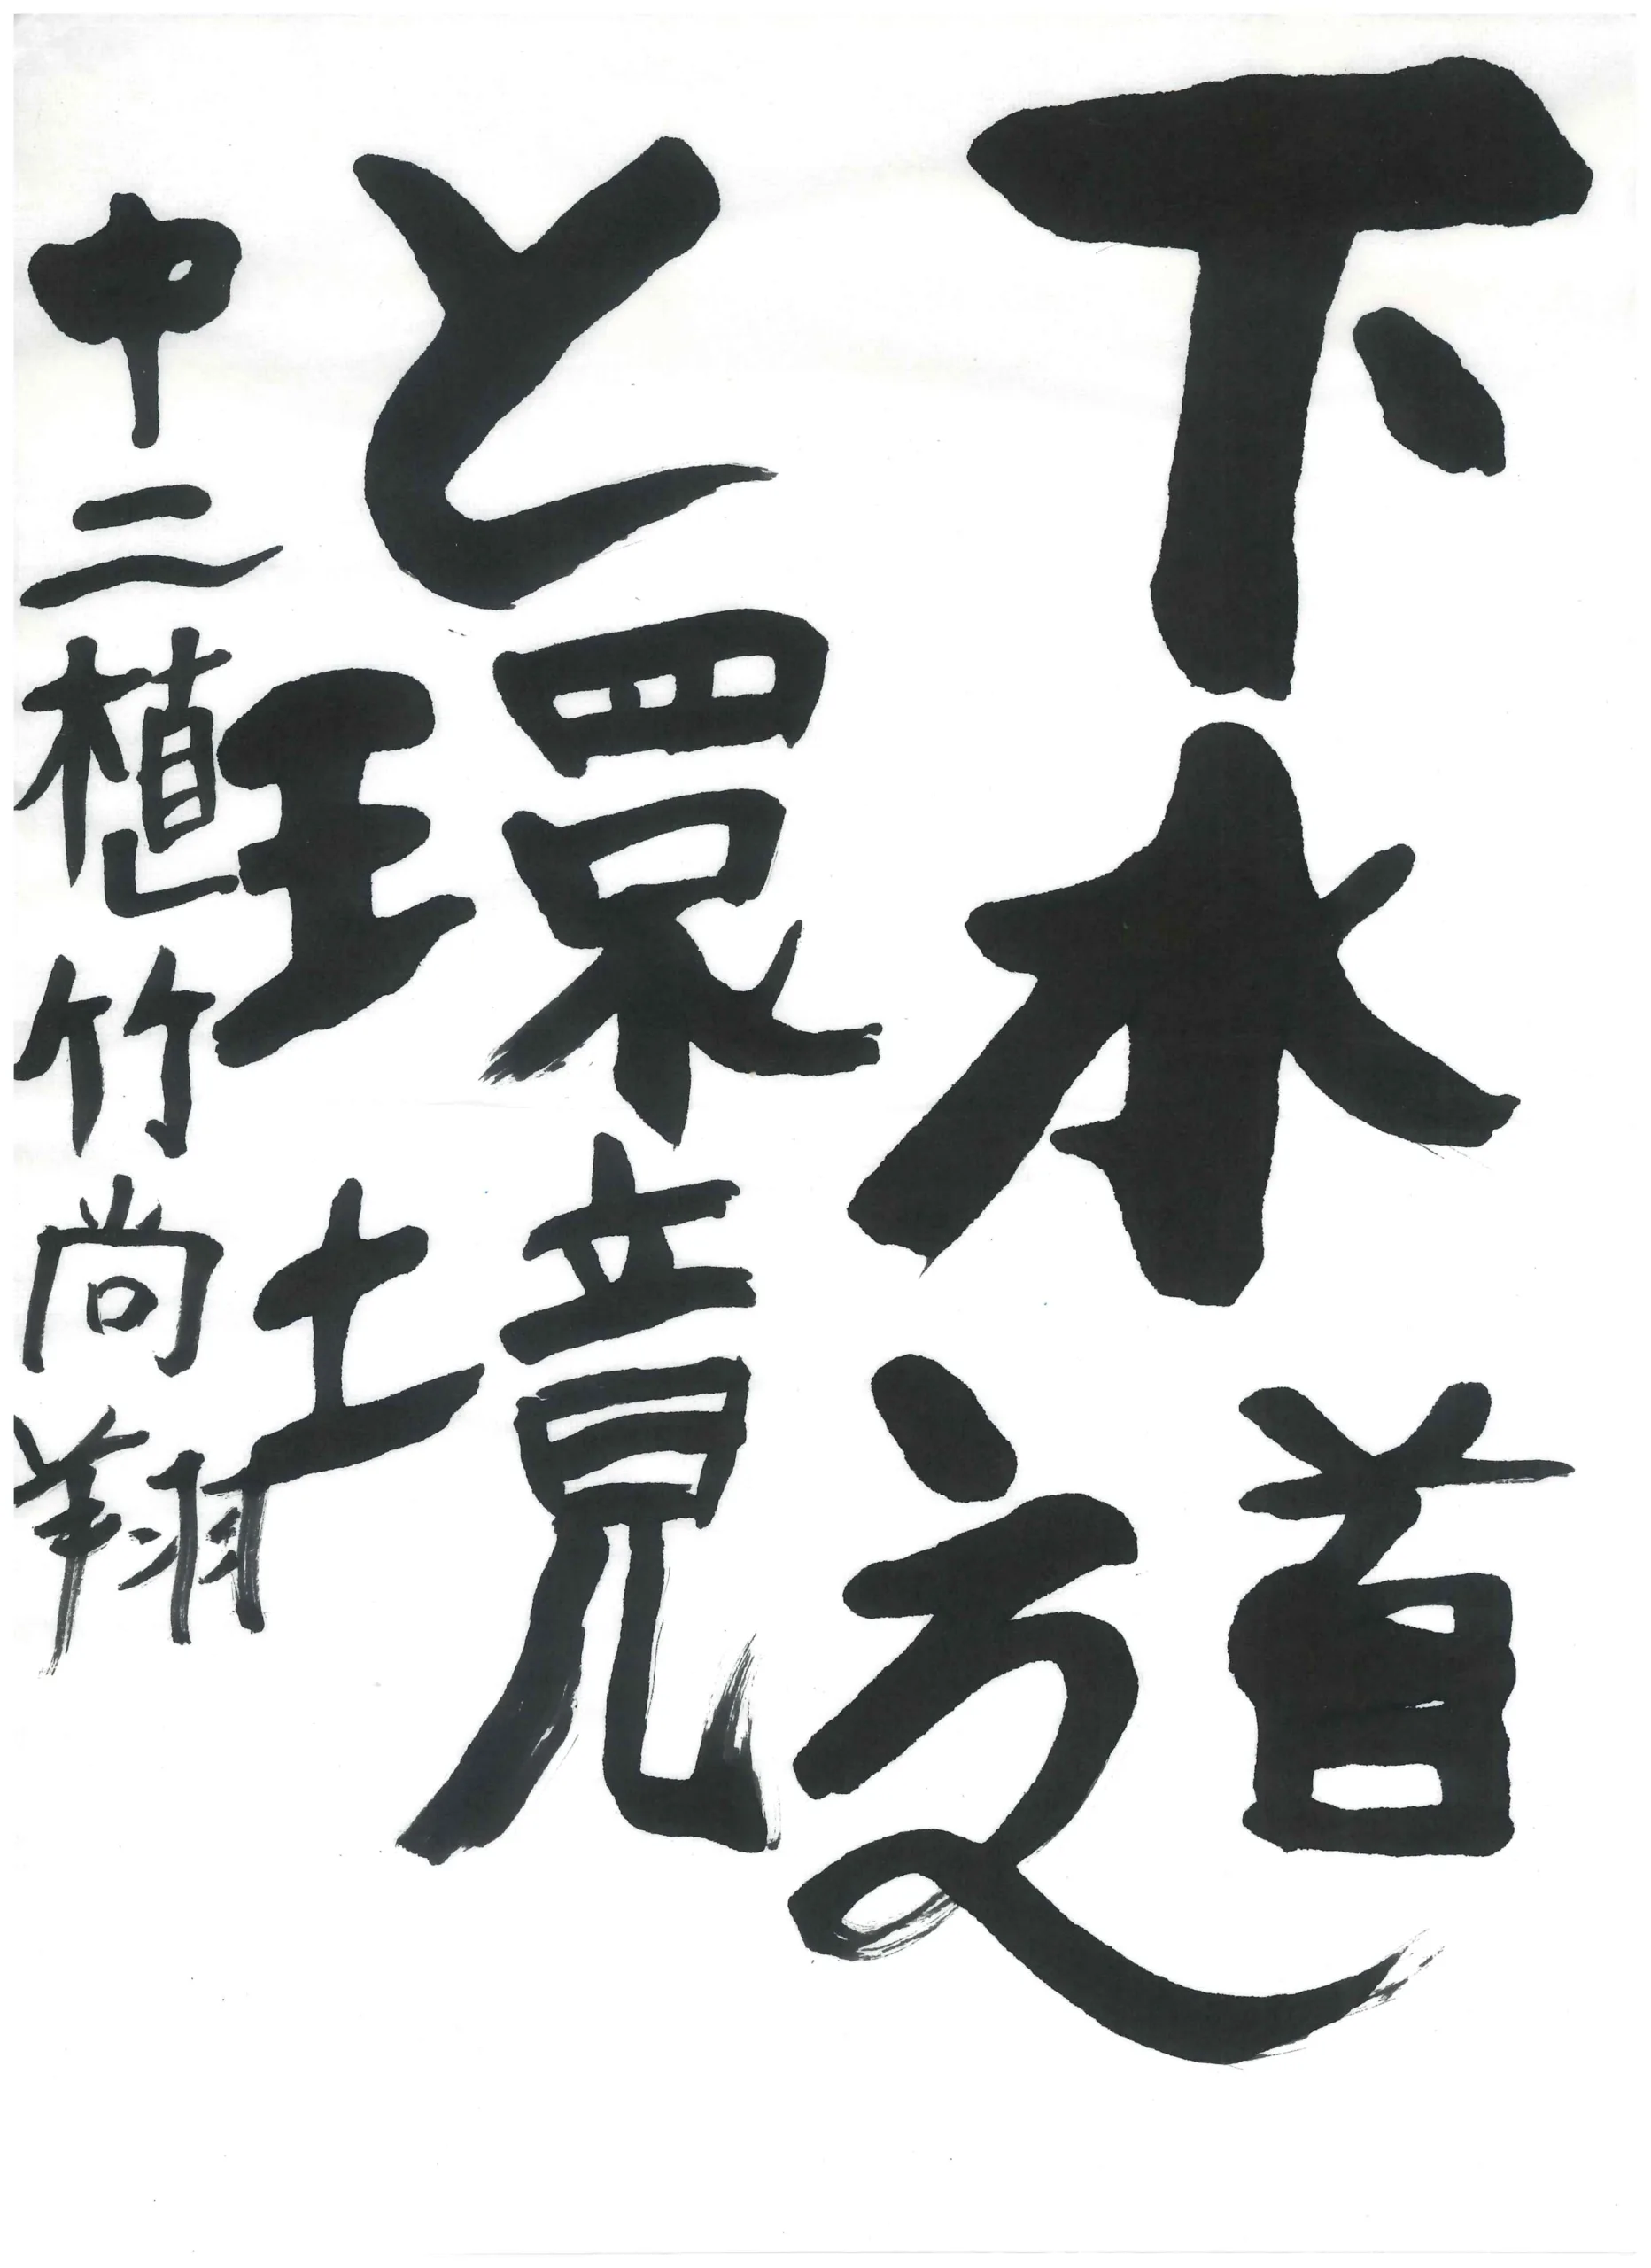 下水道
と環境
中二植竹尚翔